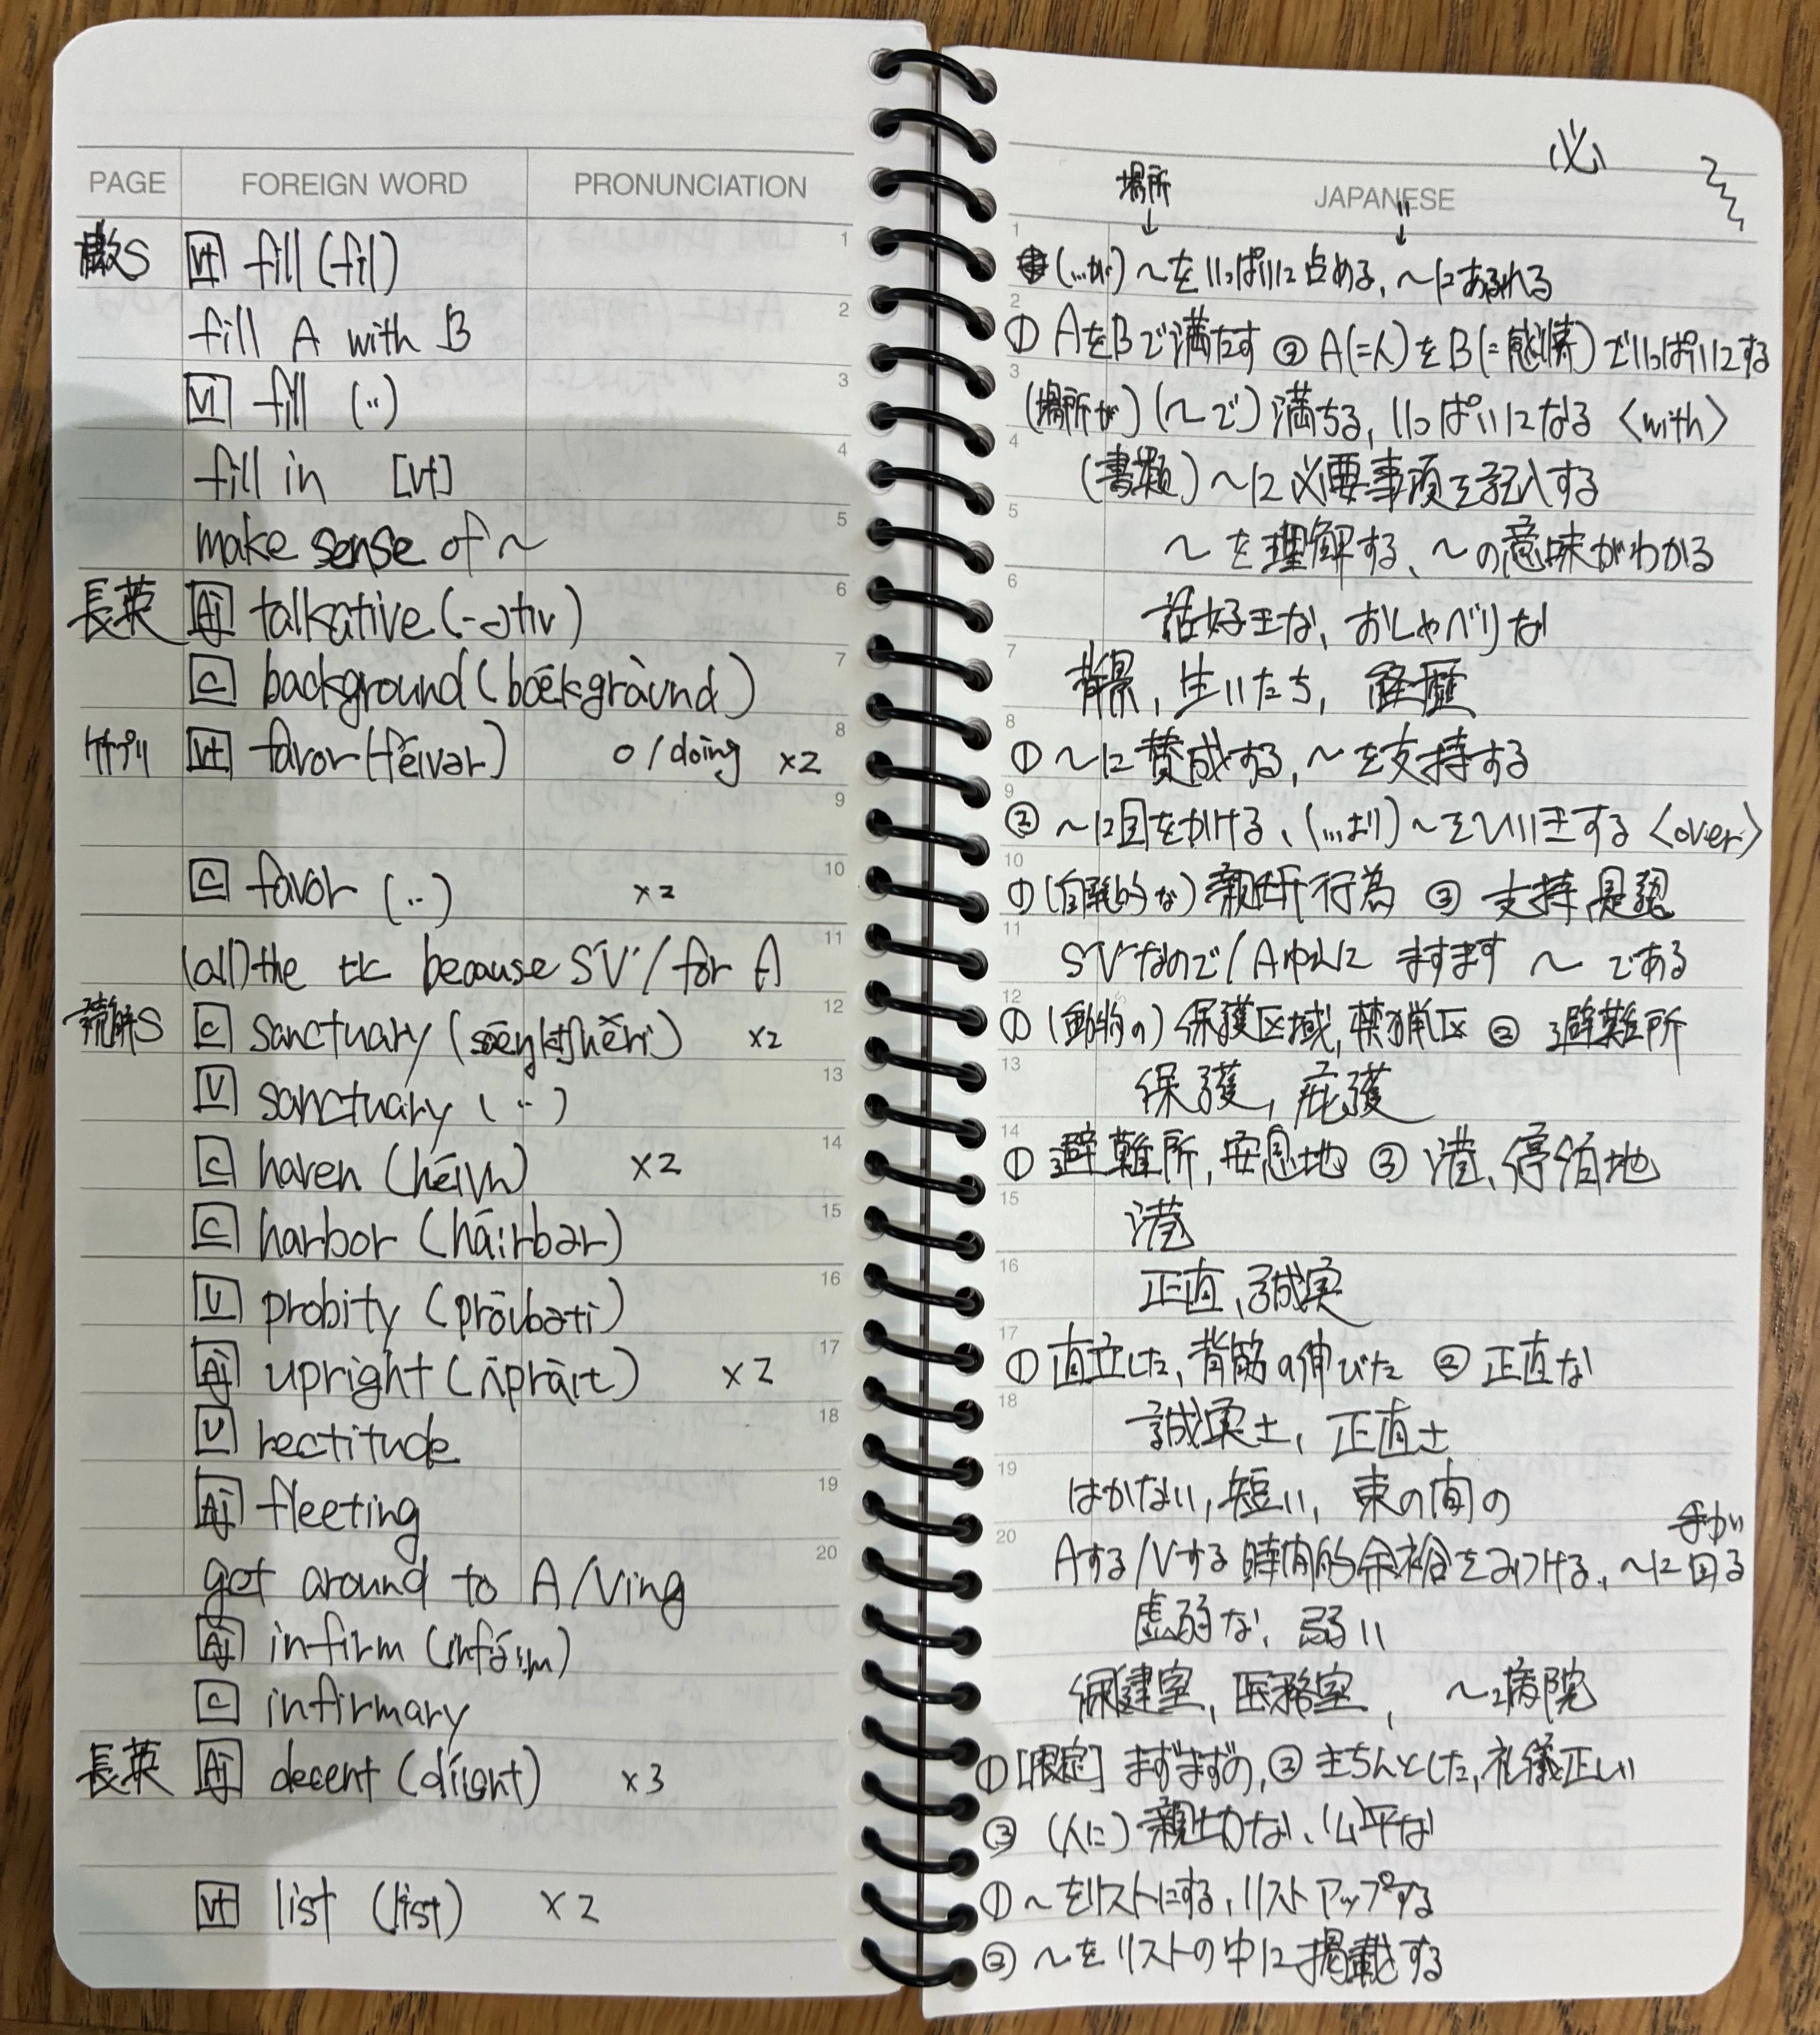 PAGE FOREIGN WORD PRONUNCIATION
Vt fill (fil) 1
fill A with B 2
VI fill (..) 3
fill in [vt] 4
make sense of ~ 5
長英 Aj talkative (-ətiv) 6
C background (bǽkgràund) 7
Vt favor (féivər) o/doing ×2 8
9
C favor (..) ×2 10
(all) the because SV/for A 11
読解S C sanctuary ×2 12
U sanctuary (..) 13
C haven ×2 14
C harbor 15
U probity 16
Aj upright ×2 17
U rectitude 18
Aj fleeting 19
get around to A/Ving 20
Aj infirm
C infirmary
長英 Aj decent ×3
vt list (list) ×2
必
場所 JAPANESE 〃
↓ ↓
1 (…が) ～をいっぱいに占める、～にあふれる
2 ① AをBで満たす ② A(=人)をB(=感情)でいっぱいにする
3 (場所が) (～で) 満ちる, いっぱいになる 〈with〉
4 (書類)～に必要事項を記入する
5 ～を理解する、～の意味がわかる
6 話好きな、おしゃべりな
7 背景, 生いたち, 経歴
8 ① ～に賛成する, ～を支持する
9 ② ～に目をかける、(…より)～をひいきする 〈over〉
10 ① (自発的な) 親切行為 ② 支持, 是認
11 SVなので/Aゆえに ますます ～ である
12 ① (動物の) 保護区域, 禁猟区 ② 避難所
13 保護, 庇護
14 ① 避難所, 安息地 ② 港、停泊地
15 港
16 正直、誠実
17 ① 直立した, 背筋の伸びた ② 正直な
18 誠実さ, 正直さ
19 はかない, 短い, 束の間の
手が
20 Aする/Vする時間的余裕をみつける、～に回る
虚弱な、弱い
保健室, 医務室, ～病院
① [限定] まずまずの, ② きちんとした, 礼儀正しい
③ (人に) 親切な、公平な
① ～をリストにする, リストアップする
② ～をリストの中に掲載する